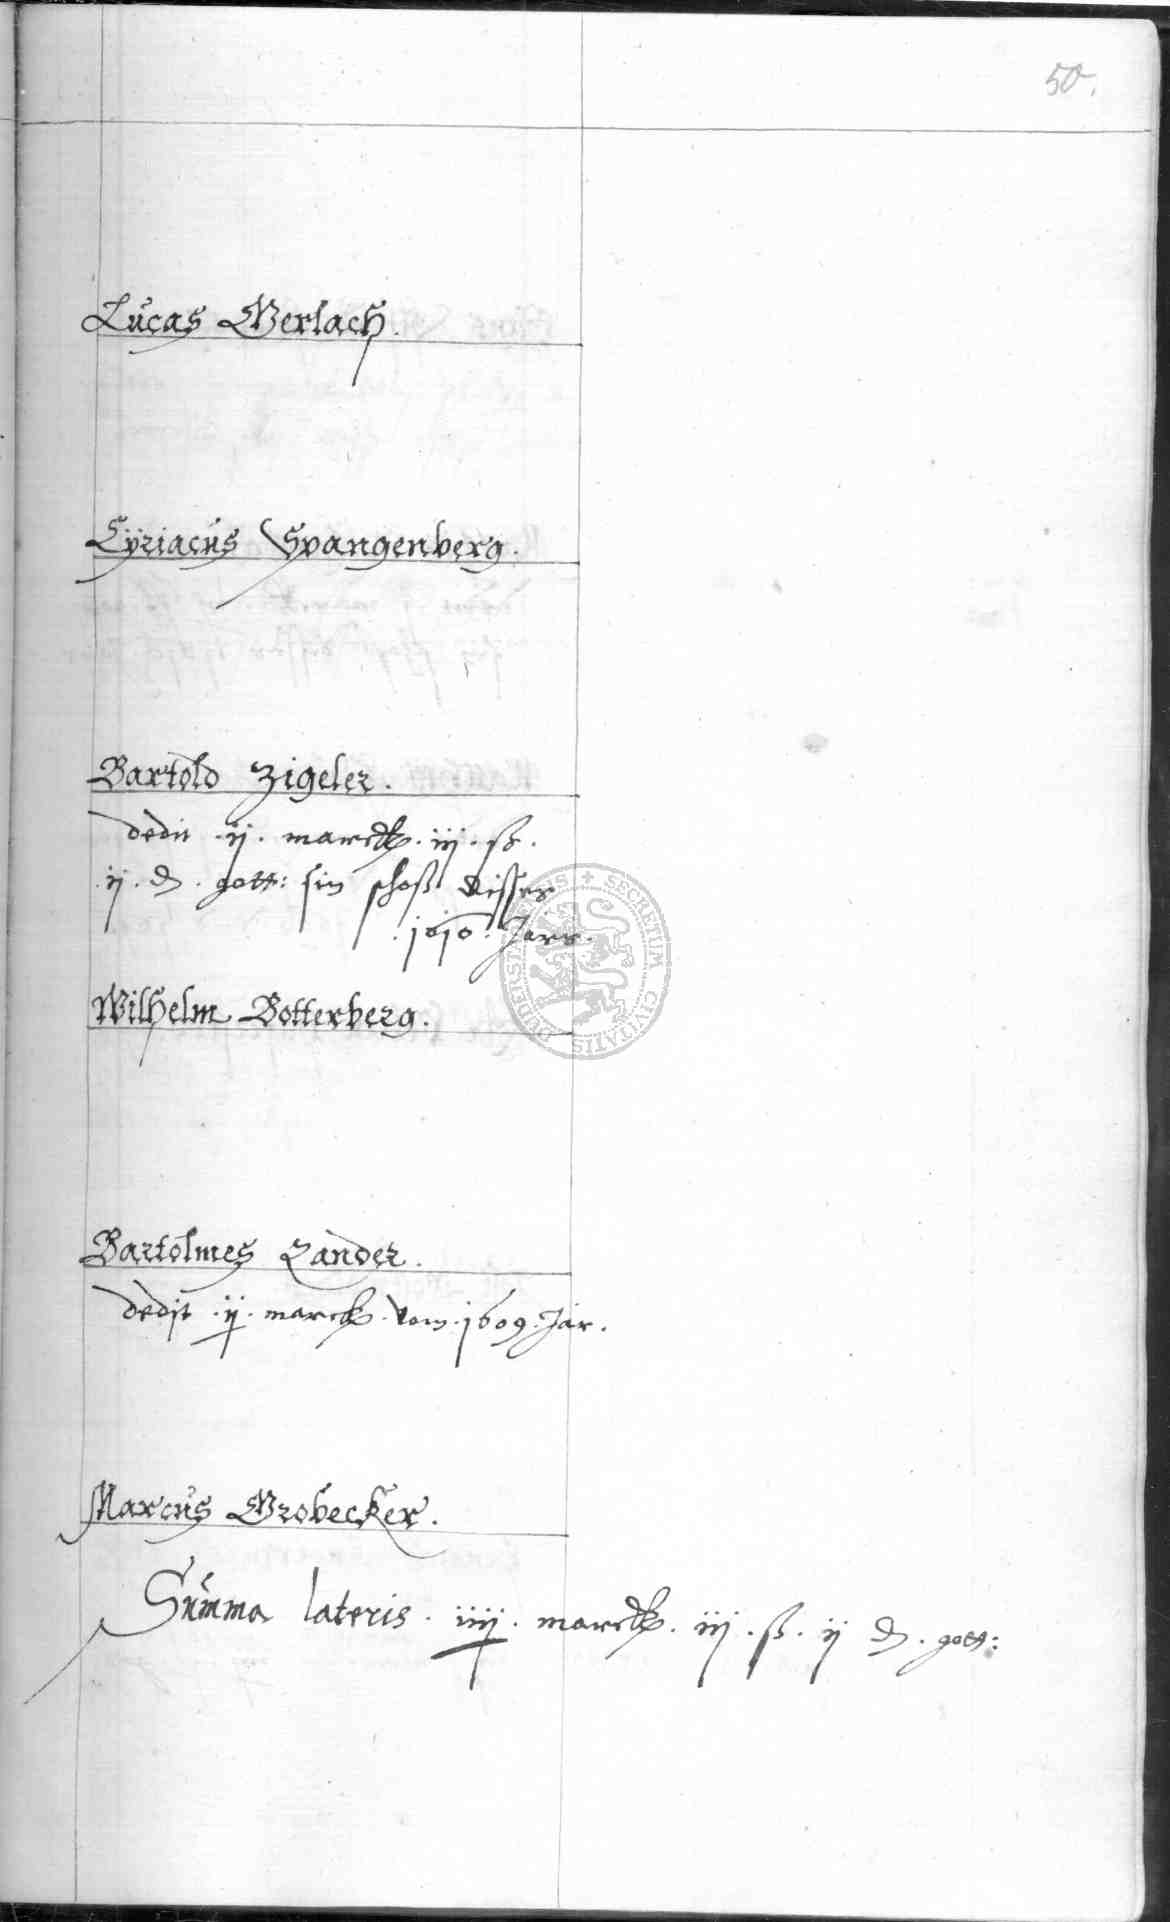 50.
Lucas Gerlach.
Cÿriacus Spangenberg.
Bartold Zigeler.
dedit .ij. marck. iij. ß.
.ij. d. gott: sin schoß disses
.1610. Jars.
Wilhelm Botterberg.
Bartolmes Zander.
dedit .ij. marck. vom .1609. Jar.
Marcus Grobecker.
Summa lateris. iiij. marck. iij. ß. ij d. gott:
SECRETUM CIVITATIS DUDERSTA